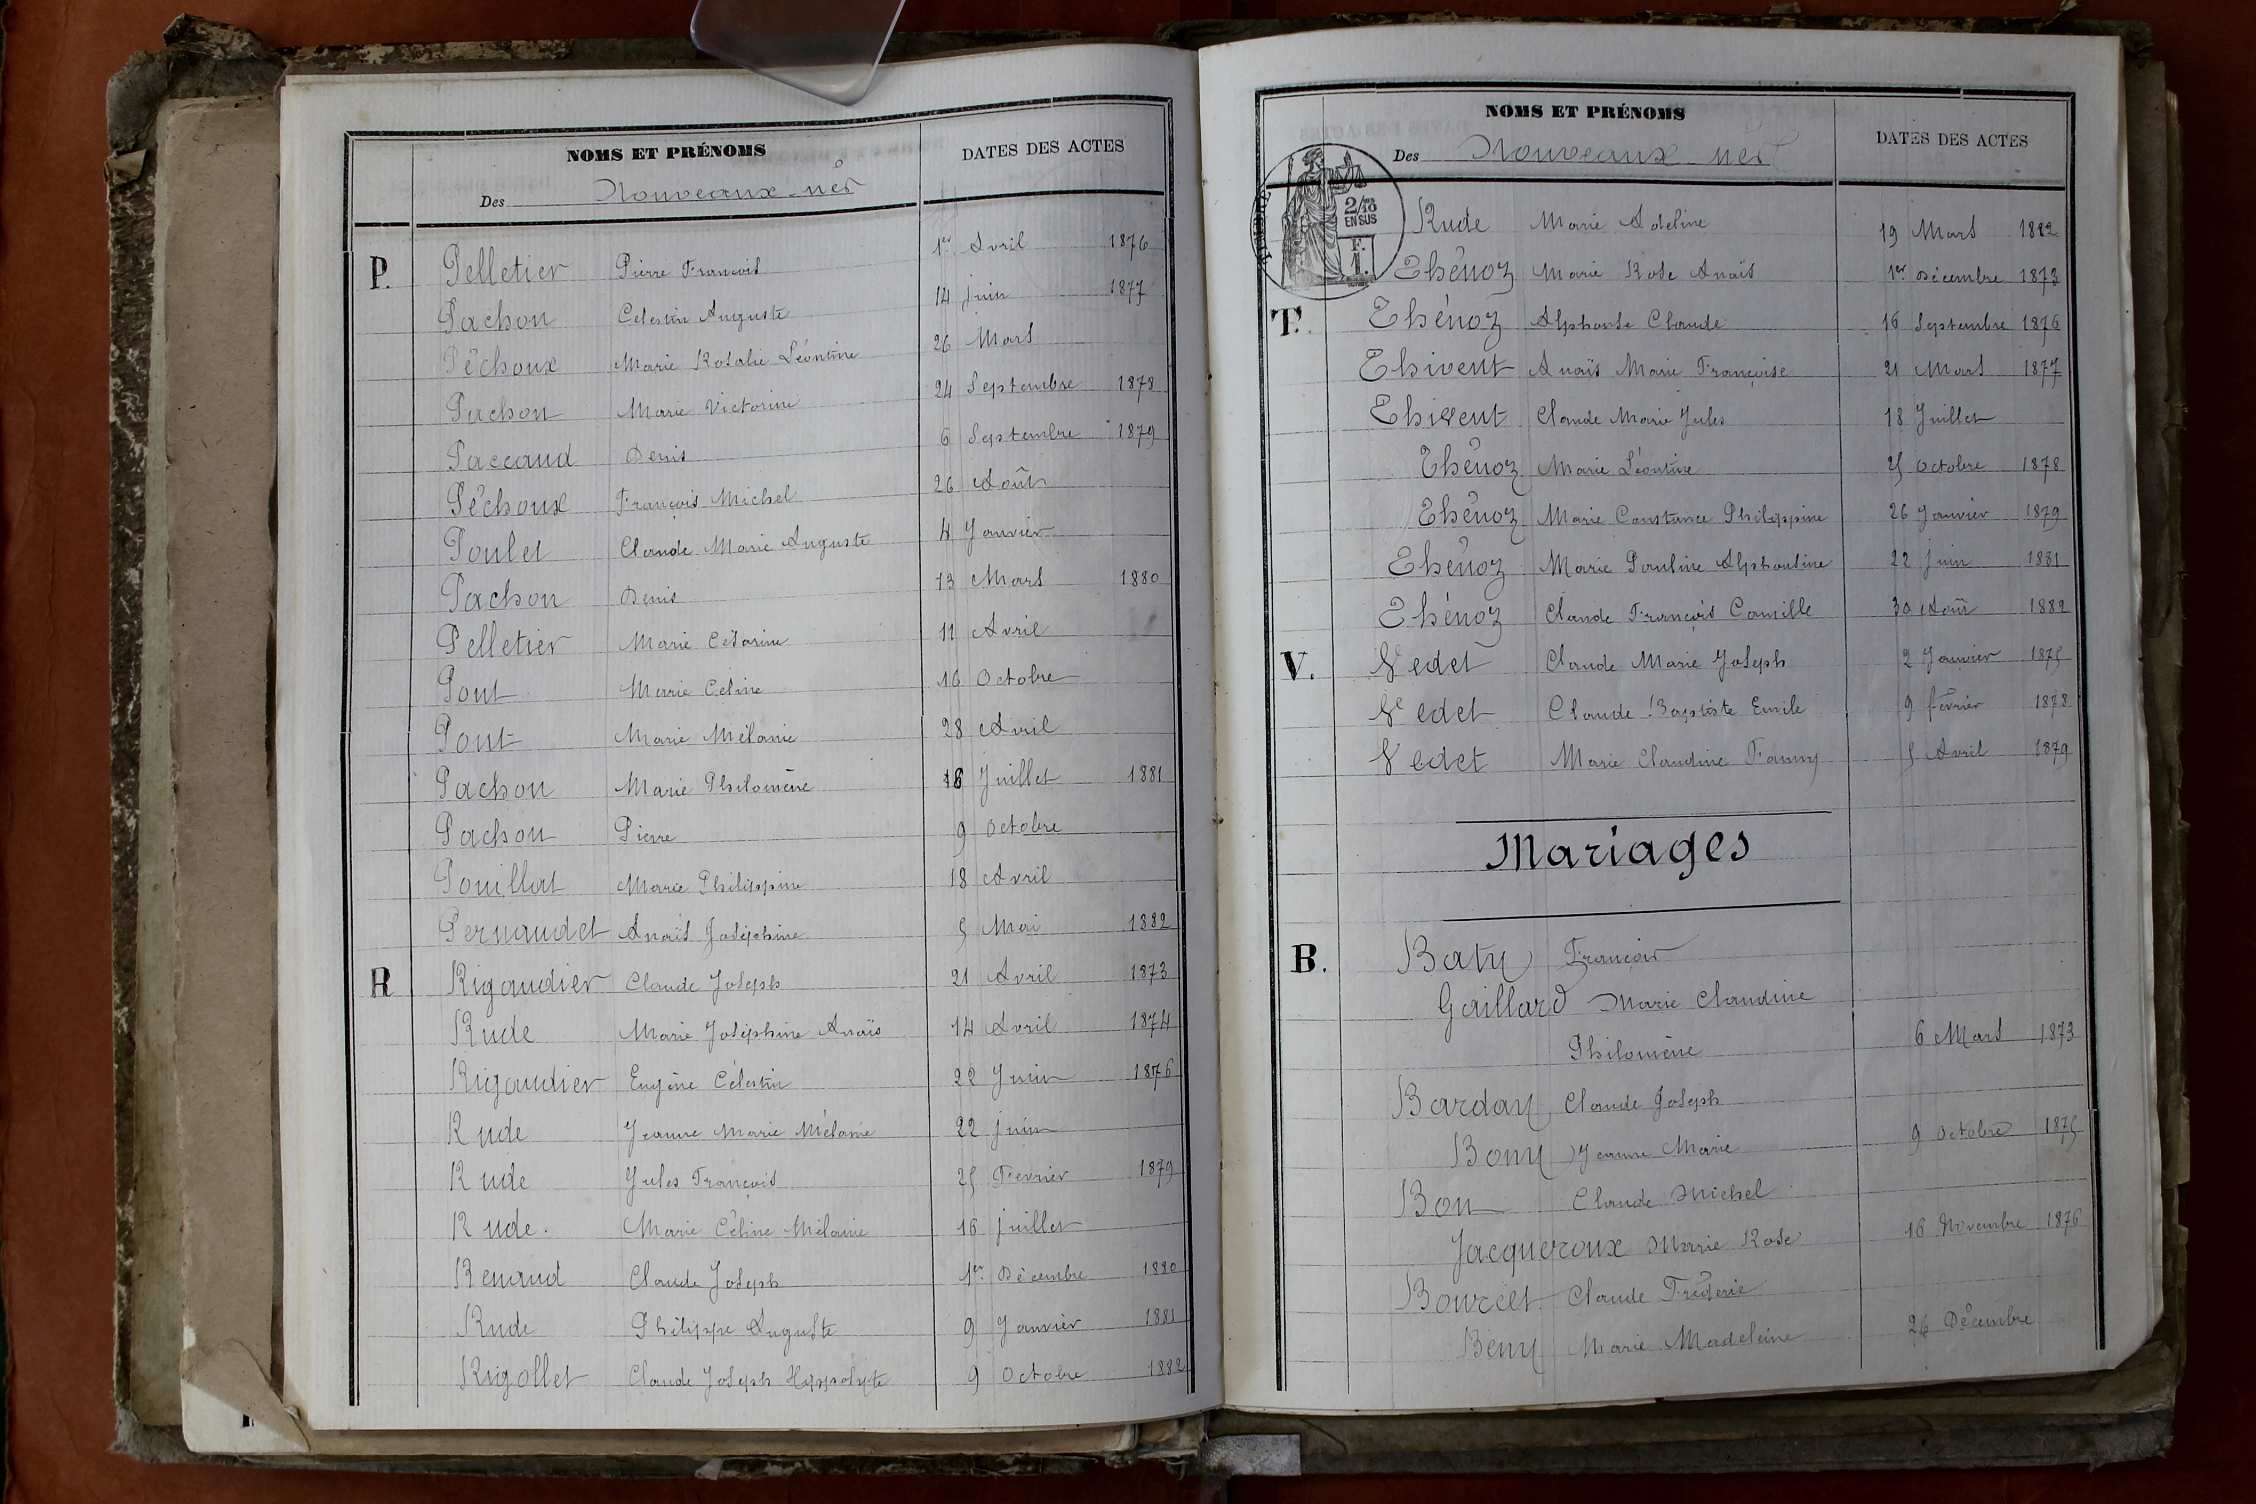 NOMS ET PRÉNOMS
DATES DES ACTES
Des Nouveaux-nés
P. Pelletier Pierre François 1er Avril 1876
Pachon Celestin Auguste 14 juin 1877
Pêchoux Marie Rosalie Léontine 26 Mars
Pachon Marie Victorine 24 Septembre 1878
Paccaud Denis 6 Septembre 1879
Pêchoux François Michel 26 Août
Poulet Claude Marie Auguste 4 Janvier
Pachon Denis 13 Mars 1880
Pelletier Marie Césarine 11 Avril
Pont Marie Celine 16 Octobre
Pont Marie Mélanie 28 Avril
Pachon Marie Philomène 16 Juillet 1881
Pachon Pierre 9 Octobre
Pouillat Marie Philippine 18 Avril
Pernaudet Anaïs Joséphine 5 Mai 1882
R Rigaudier Claude Joseph 21 Avril 1873
Rude Marie Joséphine Anaïs 14 Avril 1874
Rigaudier Eugène Célestin 22 Juin 1876
Rude Jeanne Marie Mélanie 22 juin
Rude Jules François 25 Fevrier 1879
Rude. Marie Céline Mélanie 16 juillet
Renaud Claude Joseph 1er Décembre 1880
Rude Philippe Auguste 9 Janvier 1881
Rigollet Claude Joseph Hyppolyte 9 Octobre 1882
NOMS ET PRÉNOMS
DATES DES ACTES
Des Nouveaux-nés
2/10
EN SUS
F.
1.
Rude Marie Adeline 19 Mars 1882
Thénoz Marie Rose Anaïs 1er Décembre 1873
T. Thénoz Alphonse Claude 16 Septembre 1876
Thivent Anaïs Marie Françoise 21 Mars 1877
Thivent Claude Marie Jules 18 Juillet
Thénoz Marie Léontine 25 Octobre 1878
Thénoz Marie Constance Philippine 26 Janvier 1879
Thénoz Marie Pauline Alphonsine 22 juin 1881
Thénoz Claude François Camille 30 Août 1882
V. Vedet Claude Marie Joseph 2 Janvier 1875
Vedet Claude Baptiste Emile 9 février 1878
Vedet Marie Claudine Fanny 5 Avril 1879
Mariages
B. Baty François
Gaillard Marie Claudine
Philomène 6 Mars 1873
Barday Claude Joseph
Bony Jeanne Marie 9 Octobre 1875
Bon Claude Michel
Jacqueroux Marie Rose 16 Novembre 1876
Bourcet Claude Fréderic
Beny Marie Madeleine 26 Décembre